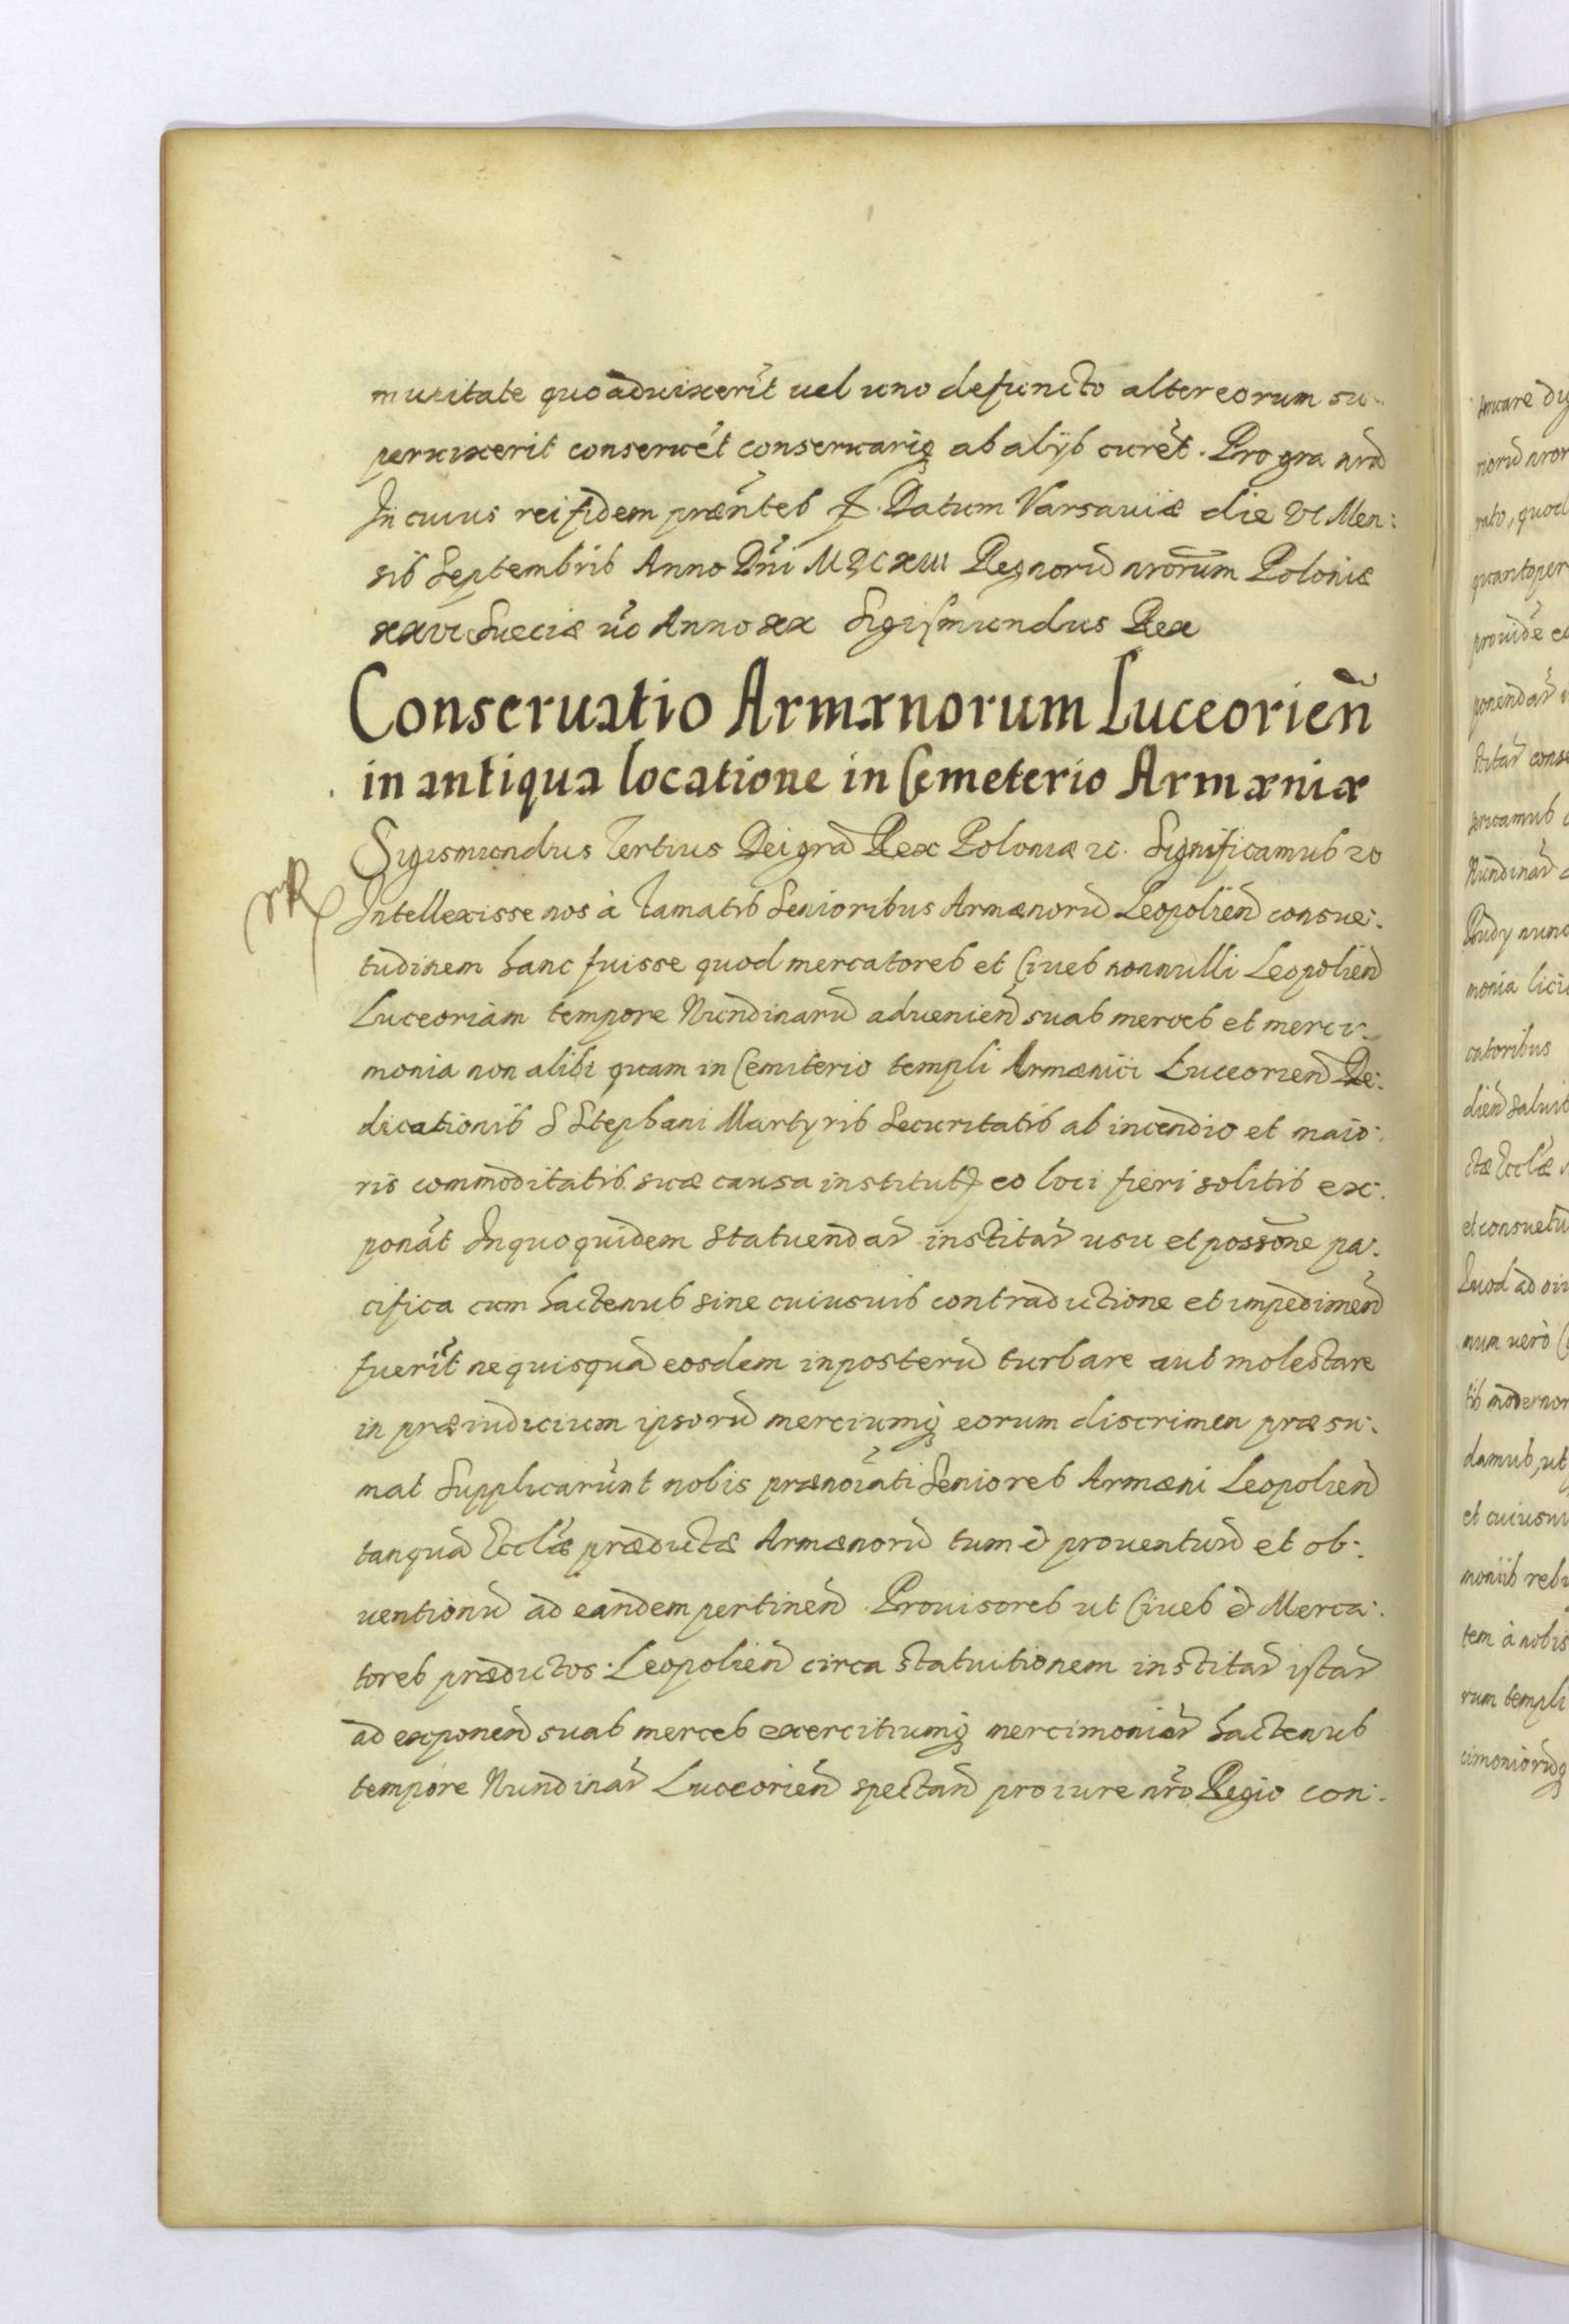 munitate quoad uixerīt uel uno defuncto alter eorum su-
peruixerit conseruēt conseruariq ab alijs curēt. Pro gra nrā
In cuius rei fidem prænteš Datum Varsauiæ die VI Men:
sis Septembris Anno Dñi MDCXIII Regnorū nrorum Poloniæ
XXVI Sueciæ uo Anno XX Sigismundus Rex
Conseruatio Armænorum Luceorieñ
in antiqua locatione in Cemeterio Armæniæ
Sigismundus Tertius Dei gra Rex Poloniæ etc. Significamus etc
Intellexisse nos à famatis Senioribus Armænorū Leopolień consue:
tudinem hanc fuisse quod mercatores et Ciues nonnulli Leopolień
Luceoriam tempore Nundinarū aduenień suas merces et merci-
monia non alibi quam in Cemiterio templi Armænici Luceorień De:
dicationis S Stephani Martyris Securitatis ab incendio et maio:
ris commoditatis suæ causa institut eo loci fieri solitis ex:
ponāt In quo quidem Statuendar institar usu et possōne pa:
cifica cum hactenus sine cuiusuis contradictione et impedimeń
fuerīt ne quisquā eosdem in posterū turbare aut molestare
in præiudicium ipsorū merciumq eorum discrimen præsu:
mat Supplicarūnt nobis prænoīati Seniores Armæni Leopolień
tanquā Ecclæ prædictæ Armænorū tum et prouentuū et ob:
uentionū ad eandem pertineń Prouisores ut Ciues et Merca:
tores prædictos Leopolień circa statuitionem institar istar
ad exponeń suas merces exercitiumq mercimoniar hactenus
tempore Nundinar Luceorień spectań pro iure nro Regio con: